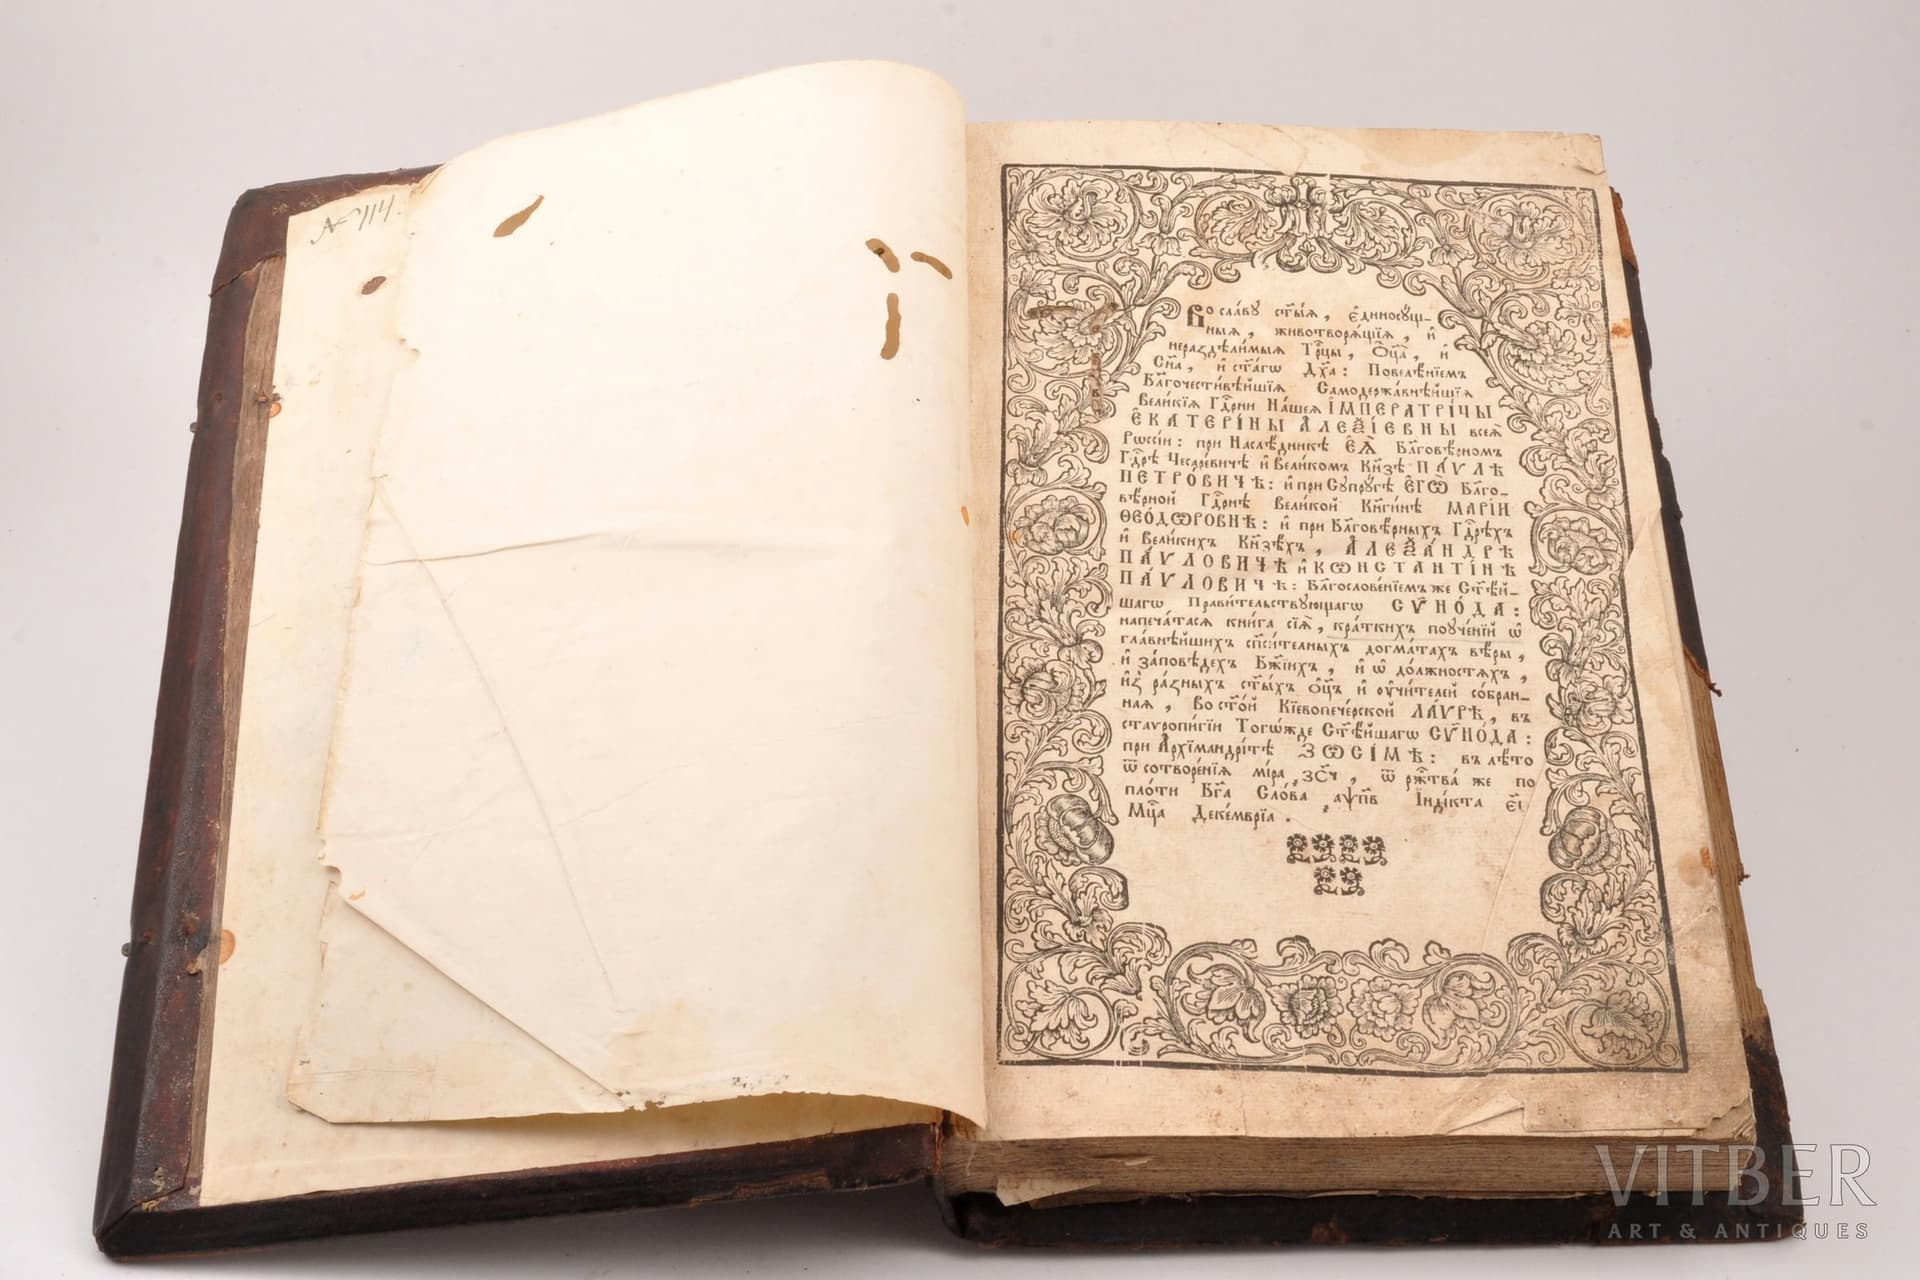 № 144.
Во сла́ву ст҃ы́я, є҆диносꙋ́щ-
ныя, животворѧ́щїѧ, и҆
неразꙣѣли́мыѧ Трⷪ҇цы, Ѻ҆ц҃а̀, и҆
Сн҃а, и҆ ст҃а́гѡ Дх҃а: Повелѣ́нїемъ
Бл҃гочести́вѣйшїѧ Самодержа́внѣйшїѧ
Вели́кїѧ Гдⷭ҇рни На́шеѧ І҆МПЕРАТРІ́ЦЫ
Є҆КАТЕРІ́НЫ А҆ЛЕѮІ́ЕВНЫ всеѧ̀
Рѡссі́и: при Наслѣ́дникѣ Є҆Ѧ̀ Бл҃говѣ́рномъ
Гдⷭ҇рѣ Чесаре́вичѣ и҆ Вели́комъ Кн҃зѣ ПА́ѴЛѢ
ПЕТРО́ВИЧѢ: и҆ при Сꙋпрꙋ́гѣ Є҆ГѠ̀ Бл҃го-
вѣ́рной Гдⷭ҇рнѣ Вели́кой Кн҃ги́нѣ МАРІ́И
ѲЕО́ДѠРОВНѢ: и҆ при Бл҃говѣ́рныхъ Гдⷭ҇рѣхъ
и҆ Вели́кихъ Кн҃зѣхъ, А҆ЛЕѮА́НДРѢ
ПА́ѴЛОВИЧѢ и҆ КѠНСТАНТІ́НѢ
ПА́ѴЛОВИЧѢ: Бл҃гослове́нїемъ же Ст҃ѣ́й-
шагѡ Прави́тельствꙋющагѡ СѴ҆НО́ДА:
напеча́тасѧ кни́га сїѧ̀, кра́ткихъ поꙋче́нїй ѡ҆
гла́внѣйшихъ сп҃си́телныхъ догма́тахъ вѣ́ры,
и҆ за́повѣдехъ Бж҃їихъ, и҆ ѡ҆ до́лжностѧхъ,
и҆з̾ ра́зныхъ ст҃ы́хъ Ѻ҆ц҃ъ и҆ ᲂу҆чи́телей со́бран-
наѧ, Во ст҃о́й Кїевопече́рской ЛА́ѴРѢ, въ
ставропигі́и Тогѡ́жде Ст҃ѣ́йшагѡ СѴ҆НО́ДА:
при А҆рхїмандрі́тѣ ЗѠСІ́МѢ: въ лѣ́то
ѿ сотворе́нїѧ мі́ра ҂зс҃ч, ѿ ржⷭ҇тва́ же по
пло́ти Бг҃а Сло́ва ҂аѱп҃в І҆ндї́кта є҃і
Мцⷭ҇а Деке́мврїа.
VITBER
ART & ANTIQUES